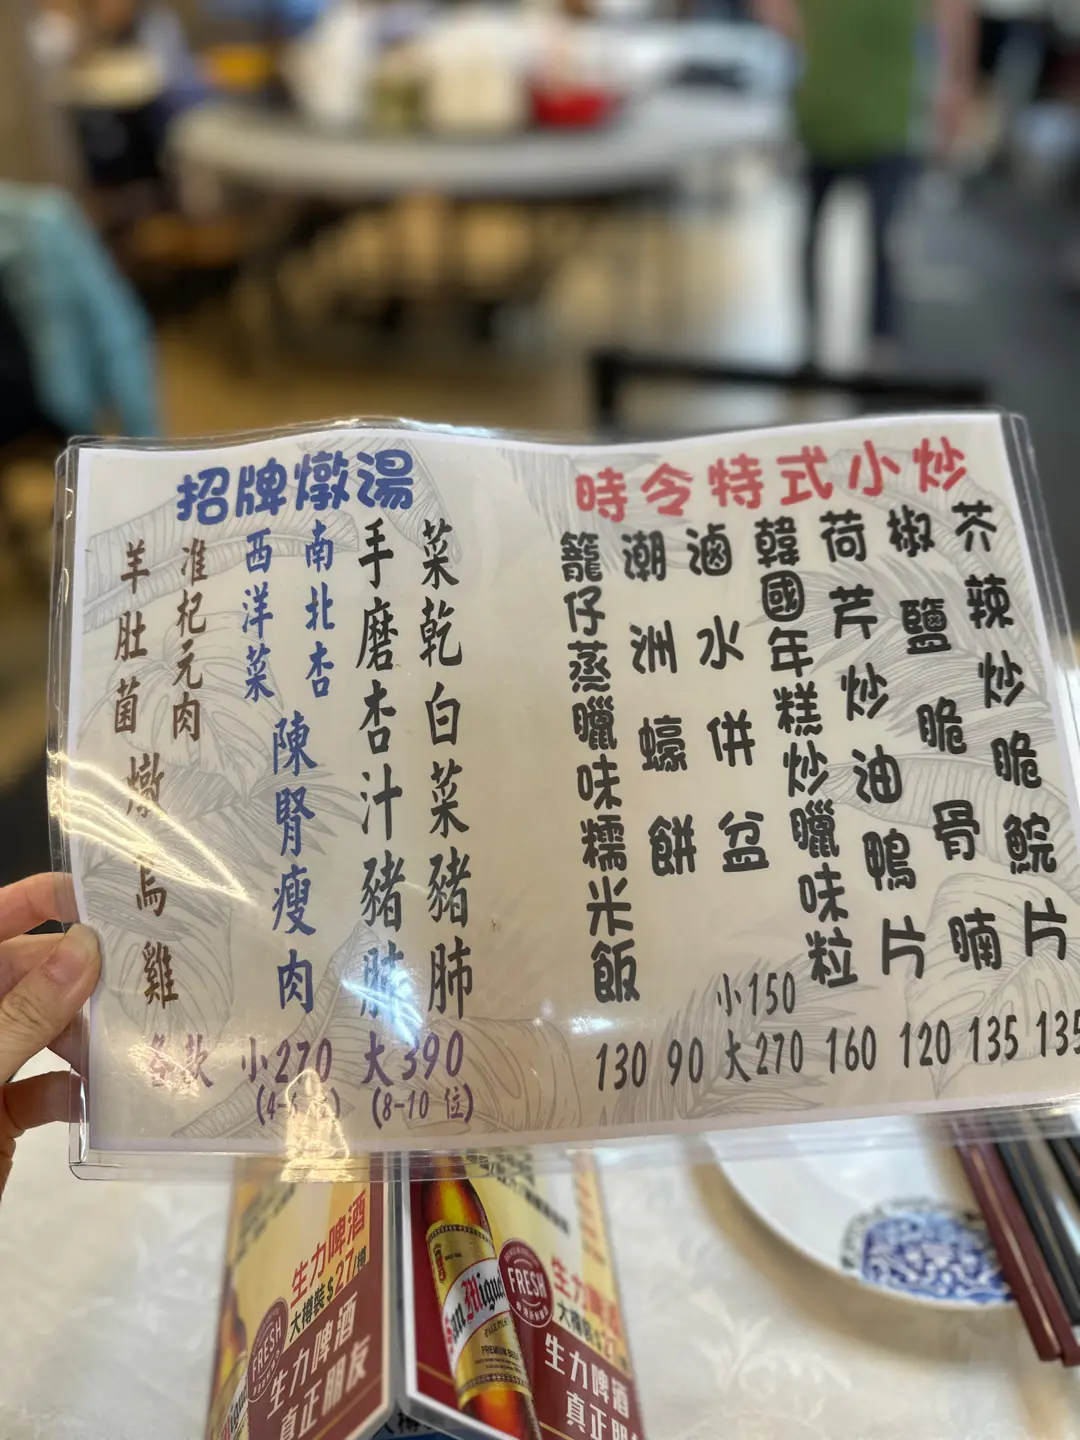 招牌燉湯
菜乾白菜豬肺
手磨杏汁豬肺
南北杏
西洋菜
陳腎瘦肉
准杞元肉
羊肚菌
燉烏雞
各款 小270 大390
(4-6位) (8-10 位)
時令特式小炒
芥辣炒脆鯇片 135
椒鹽脆骨腩 135
荷芹炒油鴨片 120
韓國年糕炒臘味粒 160
滷水併盆 小150 大270
潮洲蠔餅 90
籠仔蒸臘味糯米飯 130
生力啤酒
大樽裝$27/樽
FRESH
生力啤酒
真正朋友
San Miguel
PALE PILSEN
PREMIUM BEER
FRESH
生力啤酒
大樽裝$27
生力啤酒
真正朋友